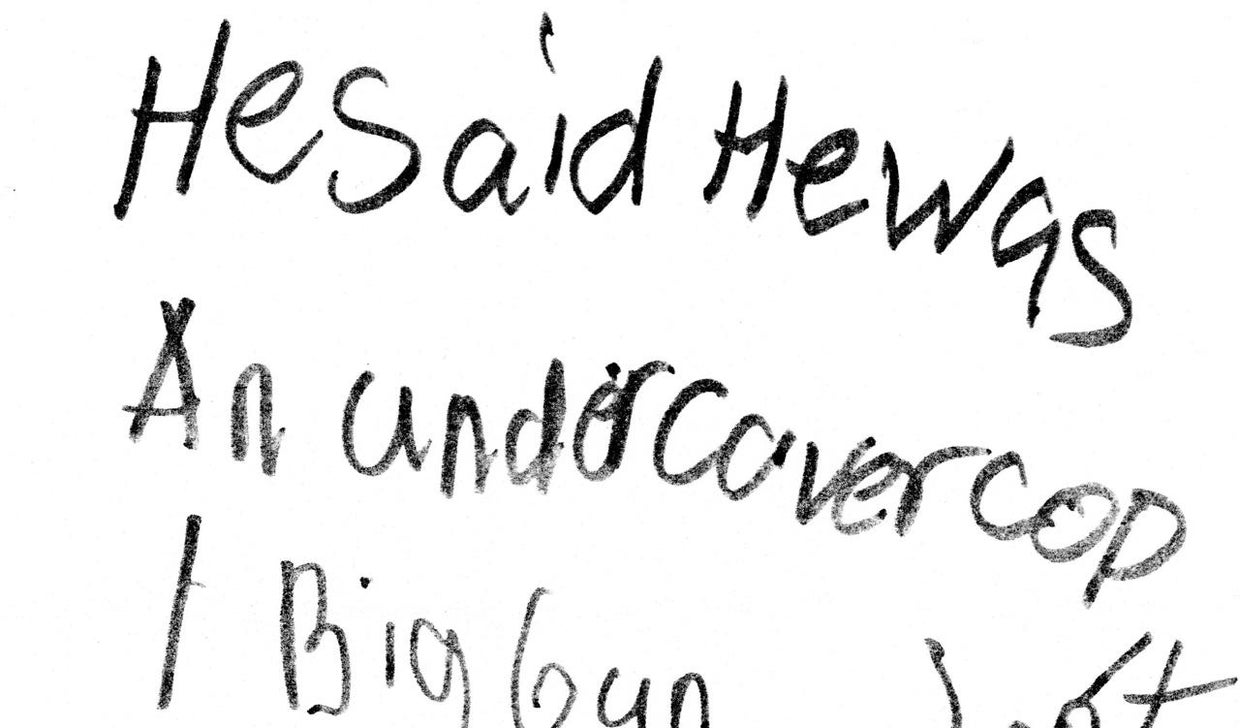 HeSaid HeWas
An undercavercop
1 Big Gun